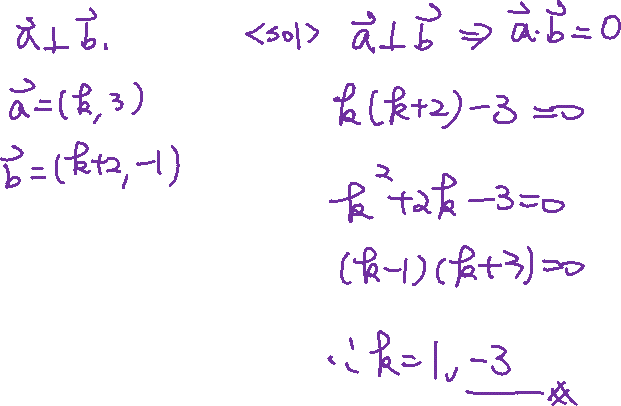 a⃗⊥b⃗.
a⃗=(k,3)
b⃗=(k+2,-1)
<sol> a⃗⊥b⃗ ⇒ a⃗·b⃗=0
k(k+2)-3=0
k²+2k-3=0
(k-1)(k+3)=0
∴k=1,-3